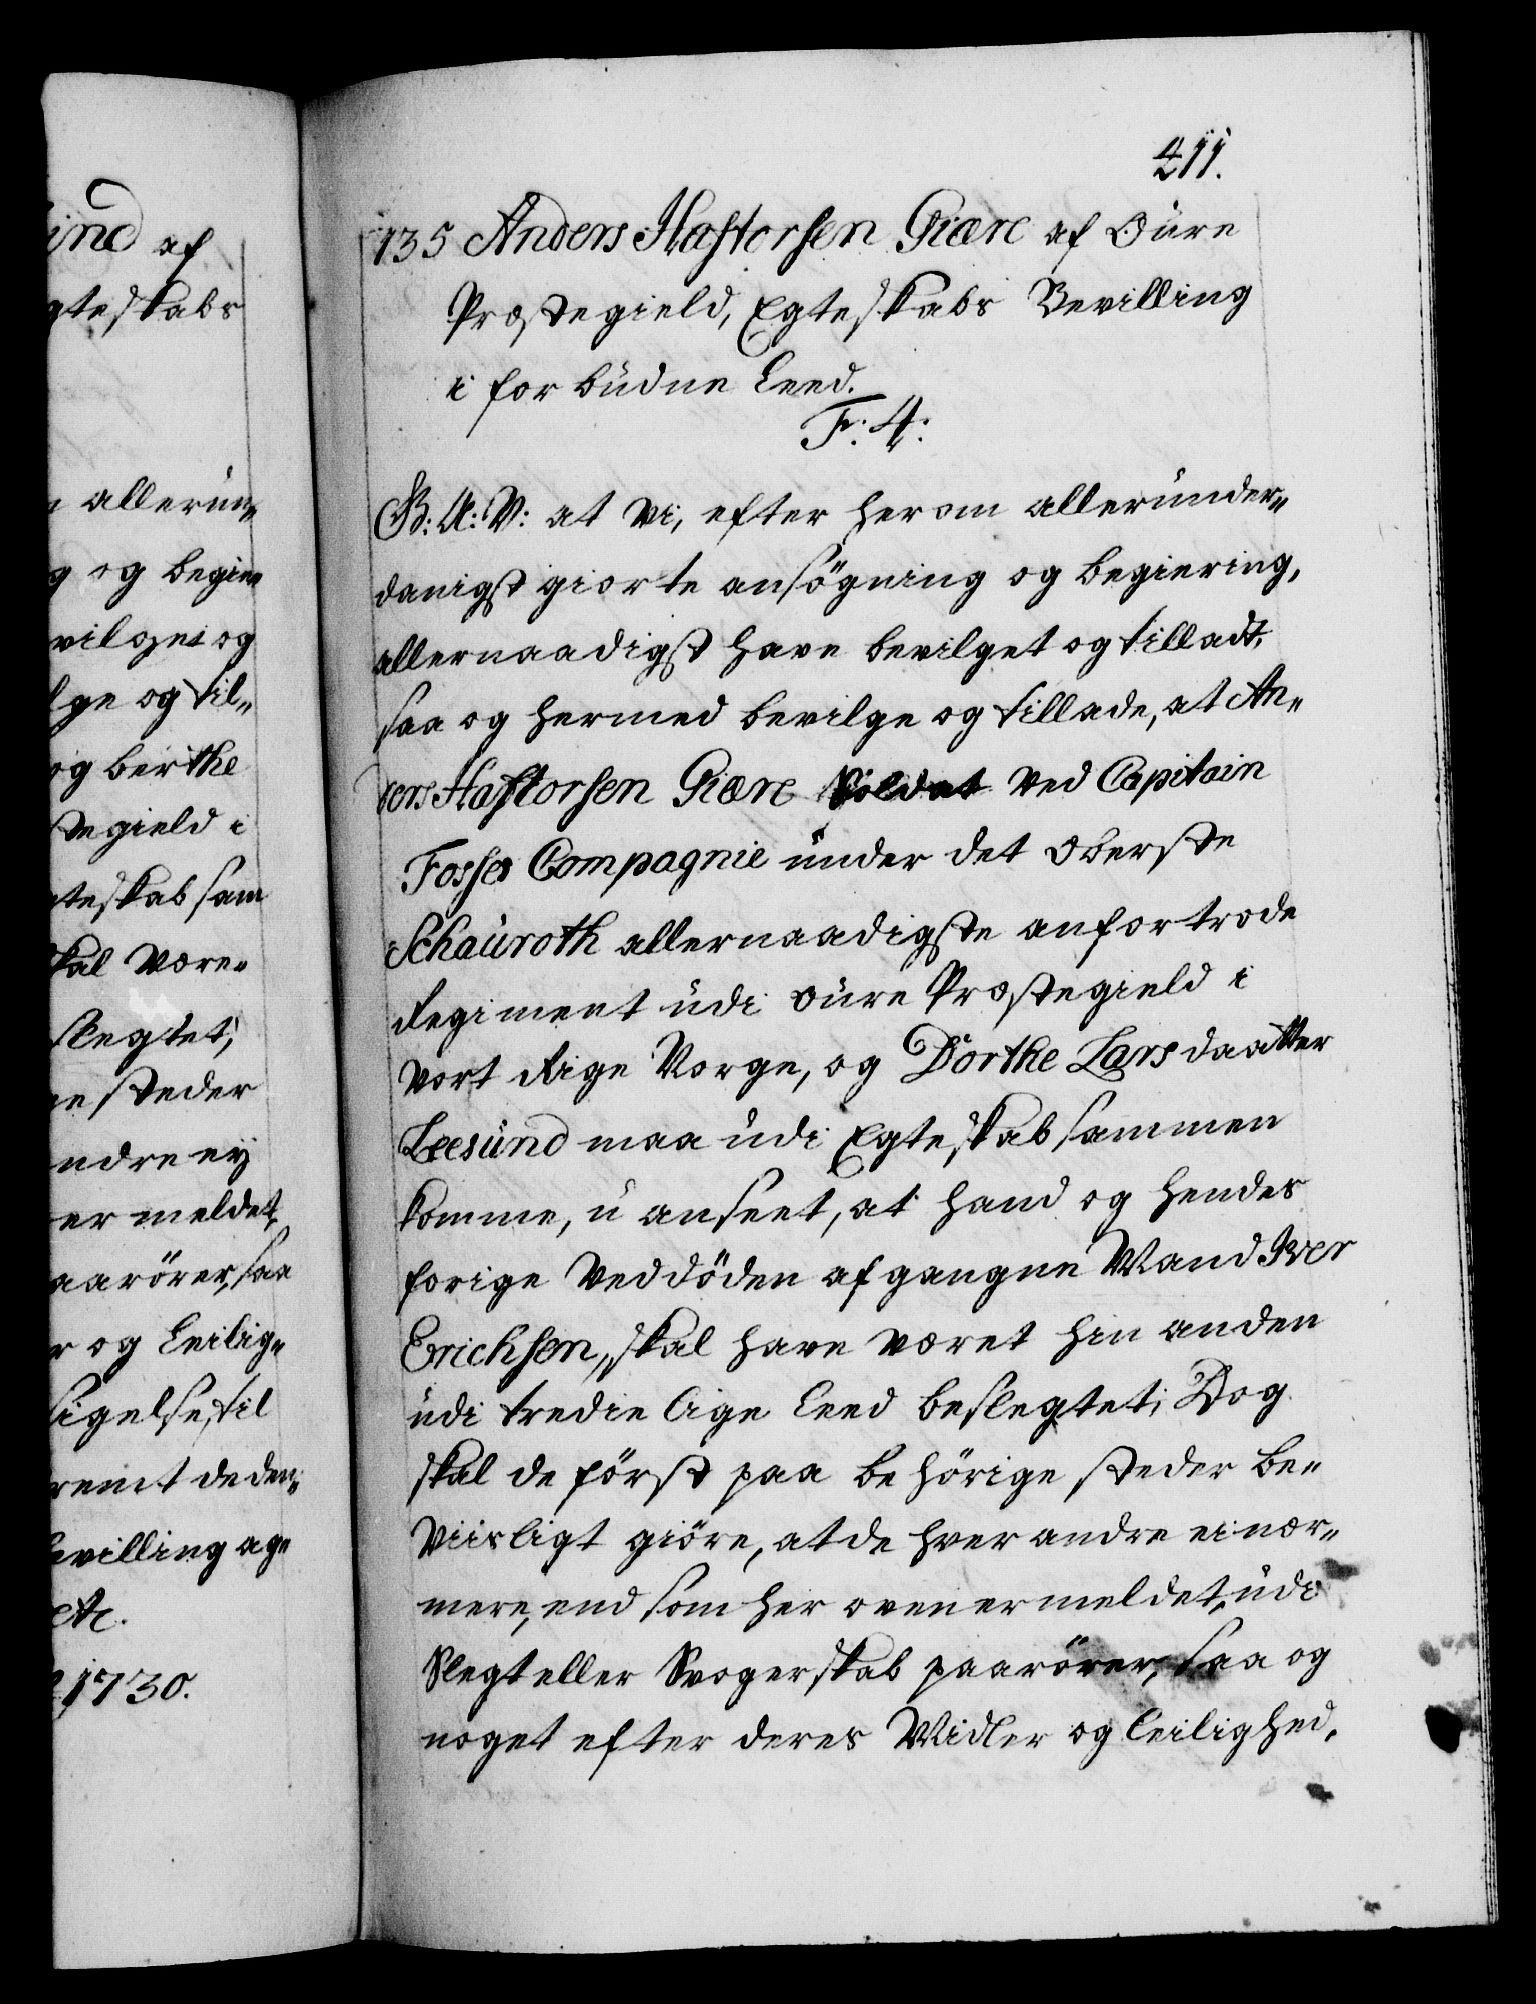 ind af
gteskabs
allerun„
g og begie„
vilget og
lge og til„
og berthe
stegield i
gteskab sam
skal være„
slegtet;
e steder
ndre eÿ
er meldet,
aarörer, saa
r og Leilig„
sigelse, til
remt de den„
evilling age
etc.
1730.
211.
135 Anders Haftorsen Giære af Oure
Præstegield, Egteskabs Bevilling
i forbudne Leed.
Fr: 4:
G: A: V: at Vi, efter herom allerunder„
danigst giorte ansögning og begiering,
allernaadigst have bevilget og tilladt,
saa og hermed bevilge og tillade, at An„
ders Haftorsen Giære Soldat ved Capitain
Fosses Compagnie under det Oberste
Schauroth allernaadigste anfortrode
Regiment udi Oure Præstegield i
Vort Rige Norge, og Dorthe Larsdaatter
Leesund maa udi Egteskab sammen
komme, u anseet, at hand og hendes
forige ved döden afgangne Mand Iver
Erichsen, skal have været hin anden
udi tredie lige Leed beslegtet; Dog
skal de först paa behörige steder be„
viisligt giöre, at de hver andre ei nær„
mere, end som her oven er meldet, udi
Slegt eller Svogerskab paarörer, saa og
noget efter deres Midler og Leilighed,